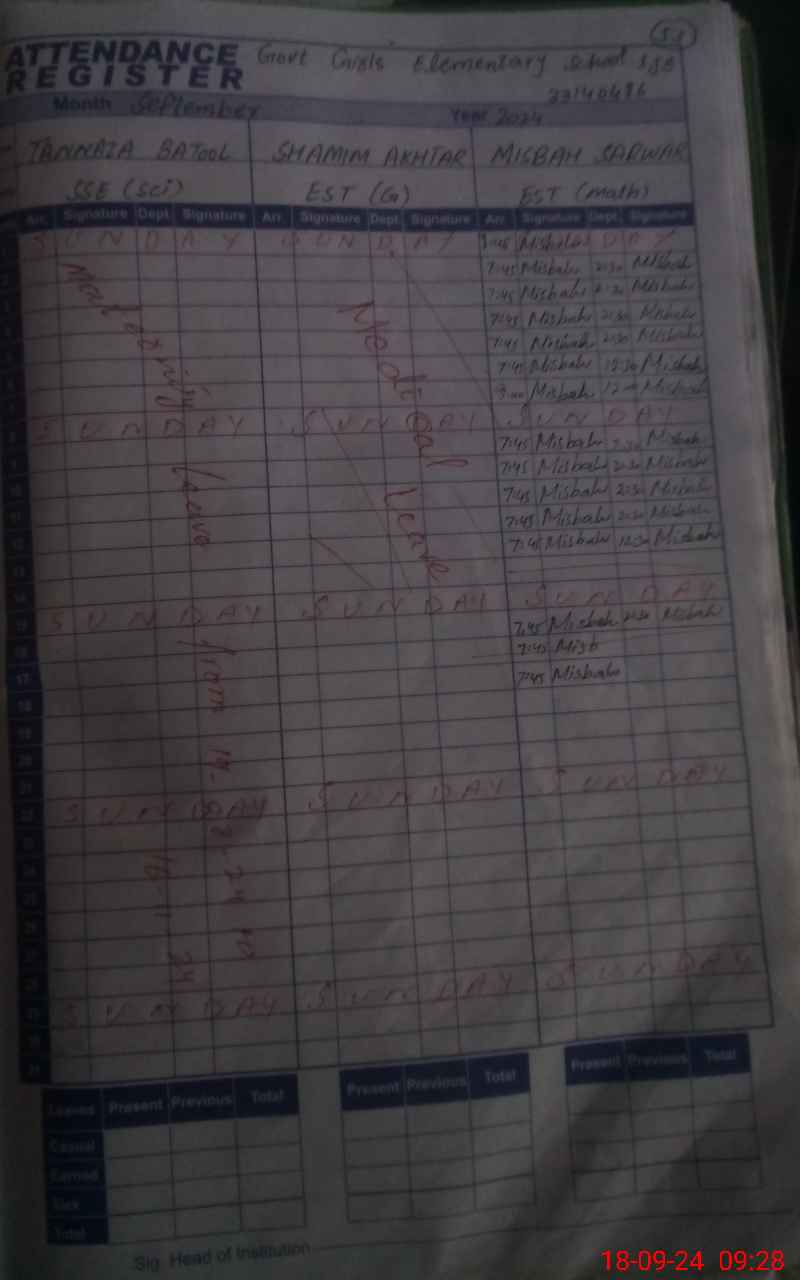 51
ATTENDANCE REGISTER Govt Girls Elementary School
33140486
Month September Year 2024
TANNAZA BATOOL SHAMIM AKHTAR MISBAH SARWAR
SSE (Sci) EST (G) EST (math)
Arr. Signature Dept. Signature Arr. Signature Dept. Signature Arr. Signature Dept. Signature
1 SUNDAY SUNDAY Misbah DAY
2 7:45 Misbah 2:30 Misbah
3 7:45 Misbah 2:30 Misbah
4 7:45 Misbah 2:30 Misbah
5 7:45 Misbah 2:30 Misbah
6 7:45 Misbah 12:30 Misbah
7 Misbah Misbah
8 SUNDAY SUNDAY SUNDAY
9 7:45 Misbah 2:30 Misbah
10 7:45 Misbah 2:30 Misbah
11 7:45 Misbah 2:30 Misbah
12 7:45 Misbah 2:30 Misbah
13 7:45 Misbah 12:30 Misbah
14
15 SUNDAY SUNDAY SUNDAY
16 7:45 Misbah 2:30 Misbah
17 7:45 Misb
18 7:45 Misbah
19
20
21
22 SUNDAY SUNDAY SUNDAY
23
24
25
26
27
28
29 SUNDAY SUNDAY SUNDAY
30
31
Leave from 19-
24 to
16-11-24
Medical Leave
Leaves Present Previous Total Present Previous Total Present Previous Total
Casual
Earned
Sick
Total
Sig. Head of Institution
18-09-24 09:28